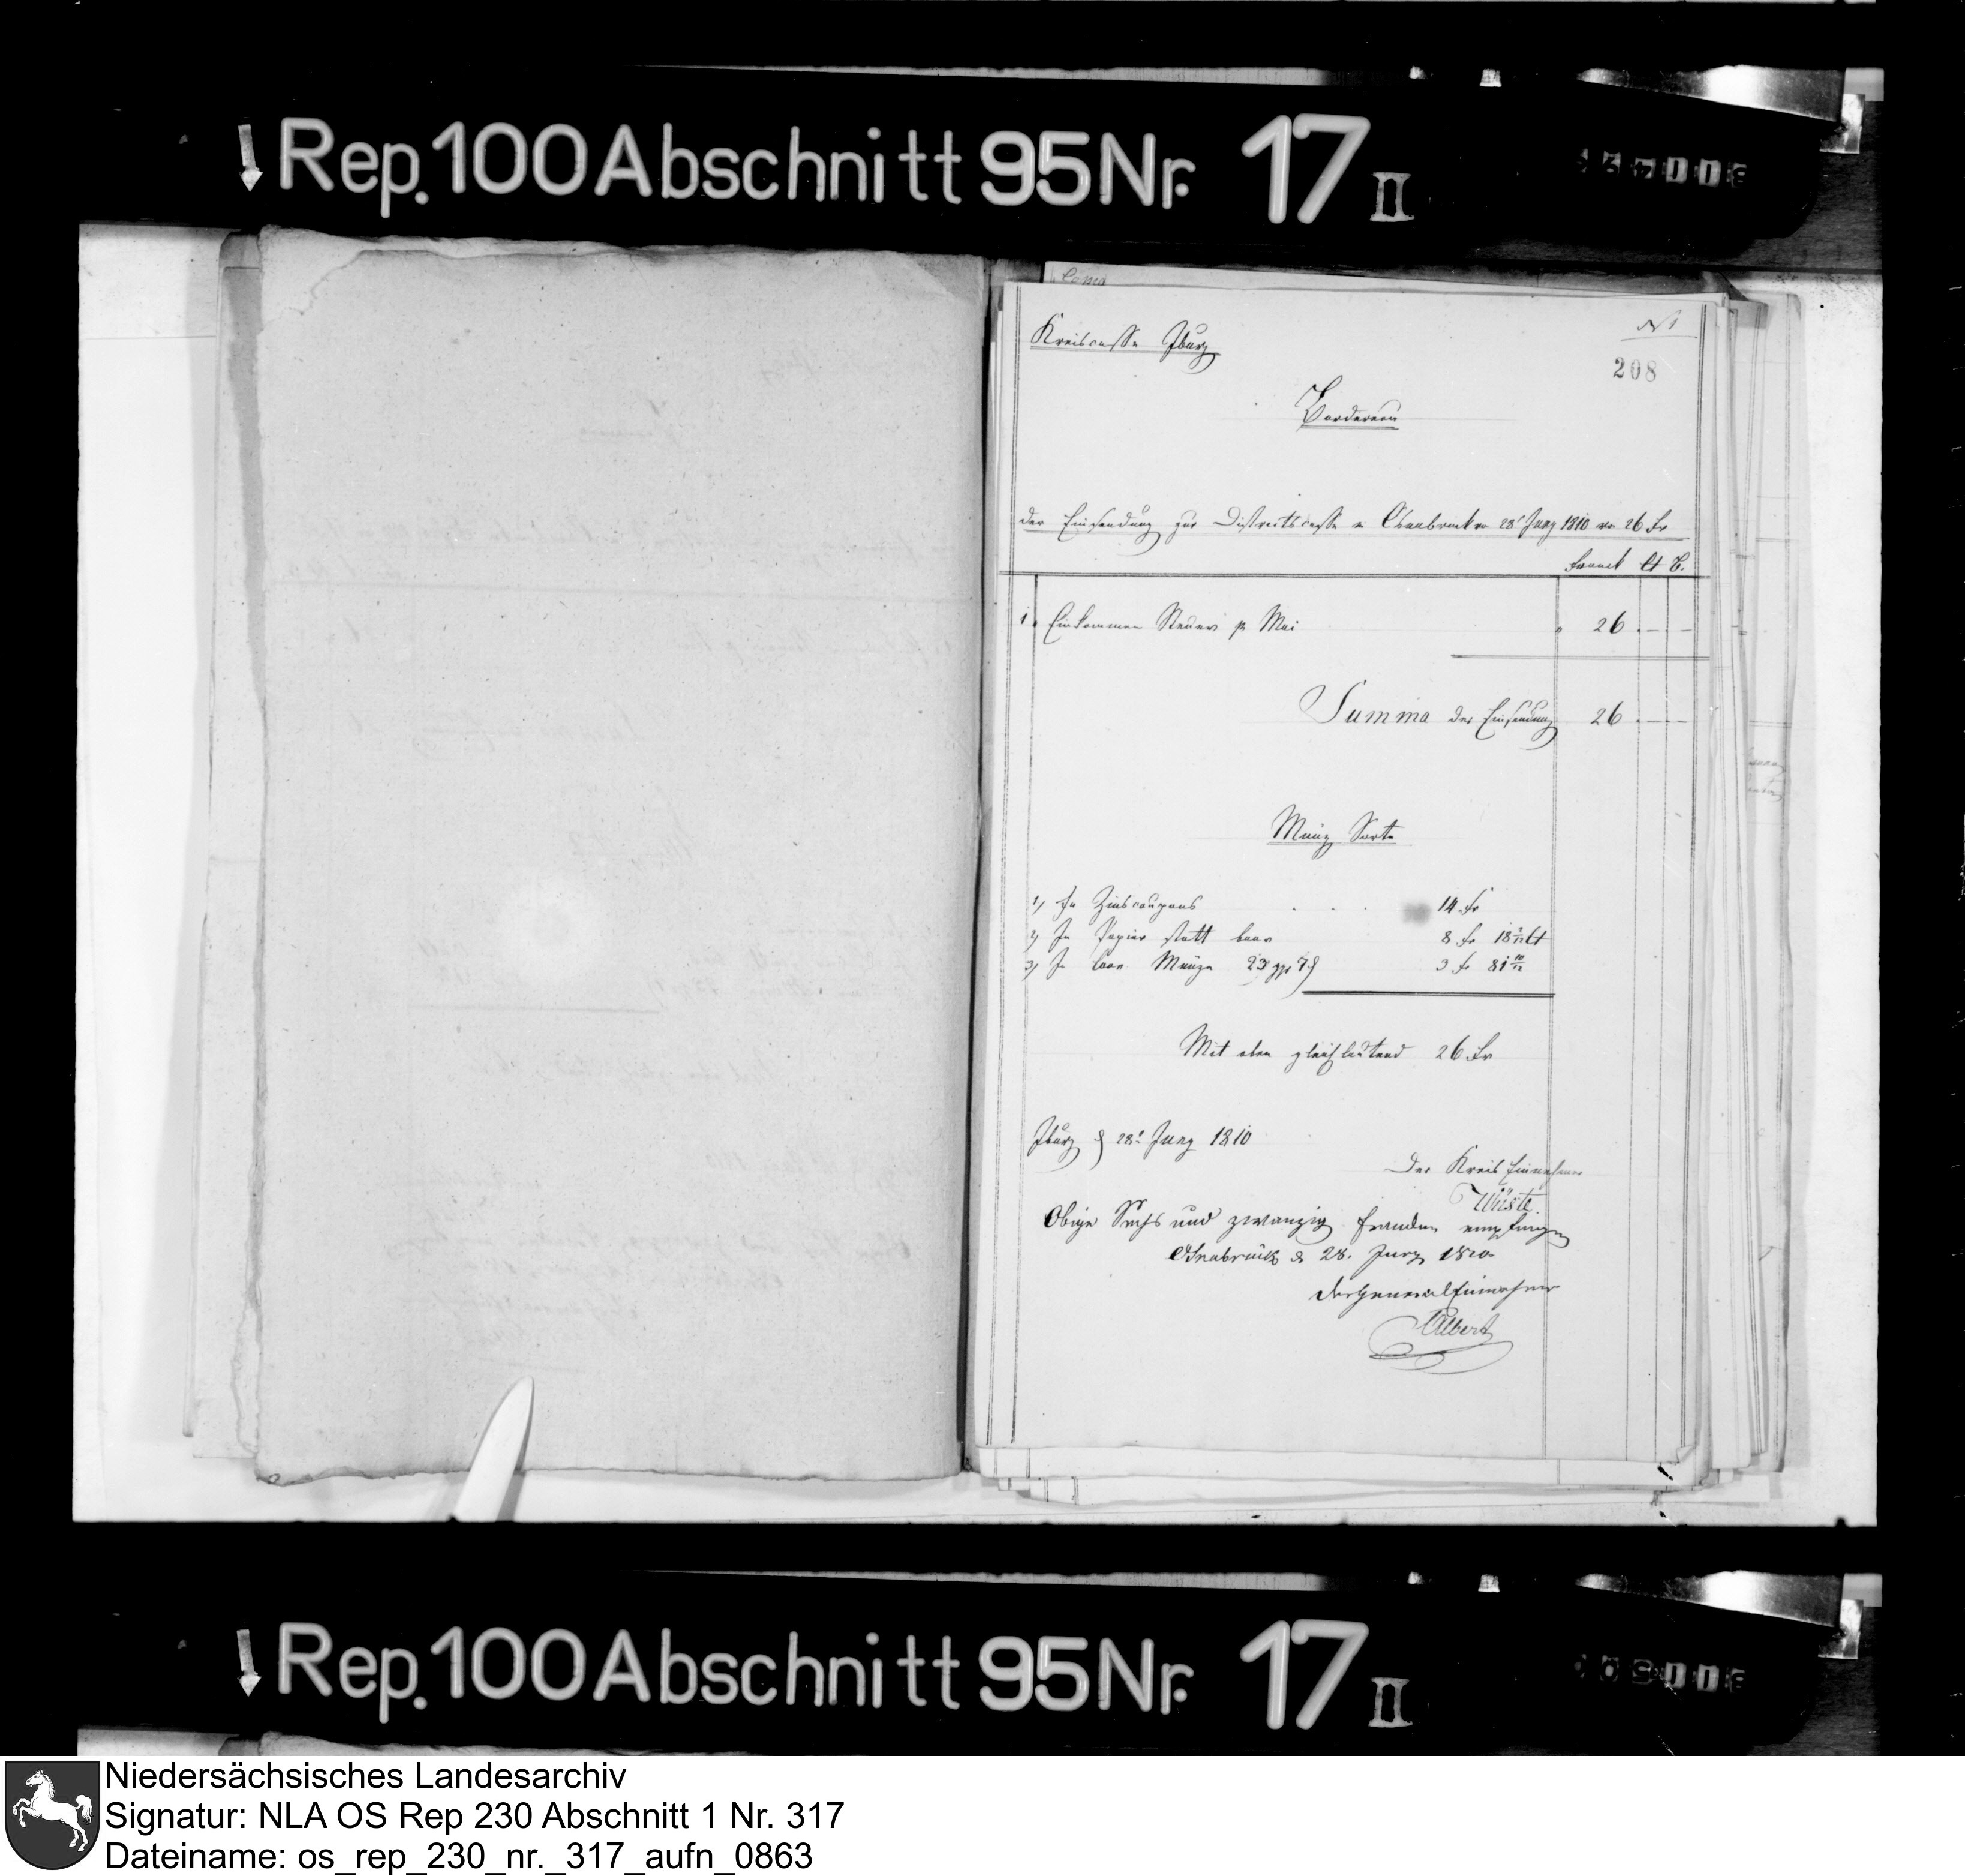 Rep. 100 Abschnitt 95 Nr. 17 II
Kreiscasse Iburg
N 1
208
Bordereau
der Einsendung zur Districtscasse Osnabruck 28t Juny 1810 26 Fr
Franck Ct
1. Einkommen Steuer p Mai 26 . — . —
Summa der Einsendung 26 . — . —
Münz Sorte
1) In Zinscoupons . . . 14 Fr
2) In Papier statt baar 8 Fr 18 2/12 Ct
3) In baar Münze 23 ggr 7 ₰ 3 Fr 81 10/12
Mit oben gleichlautend 26 Fr
Iburg d 28t Juny 1810
Der Kreis Einnehmer
Wüste.
Obige Sechs und zwanzig Franken empfangen
Osnabrück d 28. Juny 1810
Der General Einnehmer
Albert
Rep. 100 Abschnitt 95 Nr. 17 II
Niedersächsisches Landesarchiv
Signatur: NLA OS Rep 230 Abschnitt 1 Nr. 317
Dateiname: os_rep_230_nr._317_aufn_0863